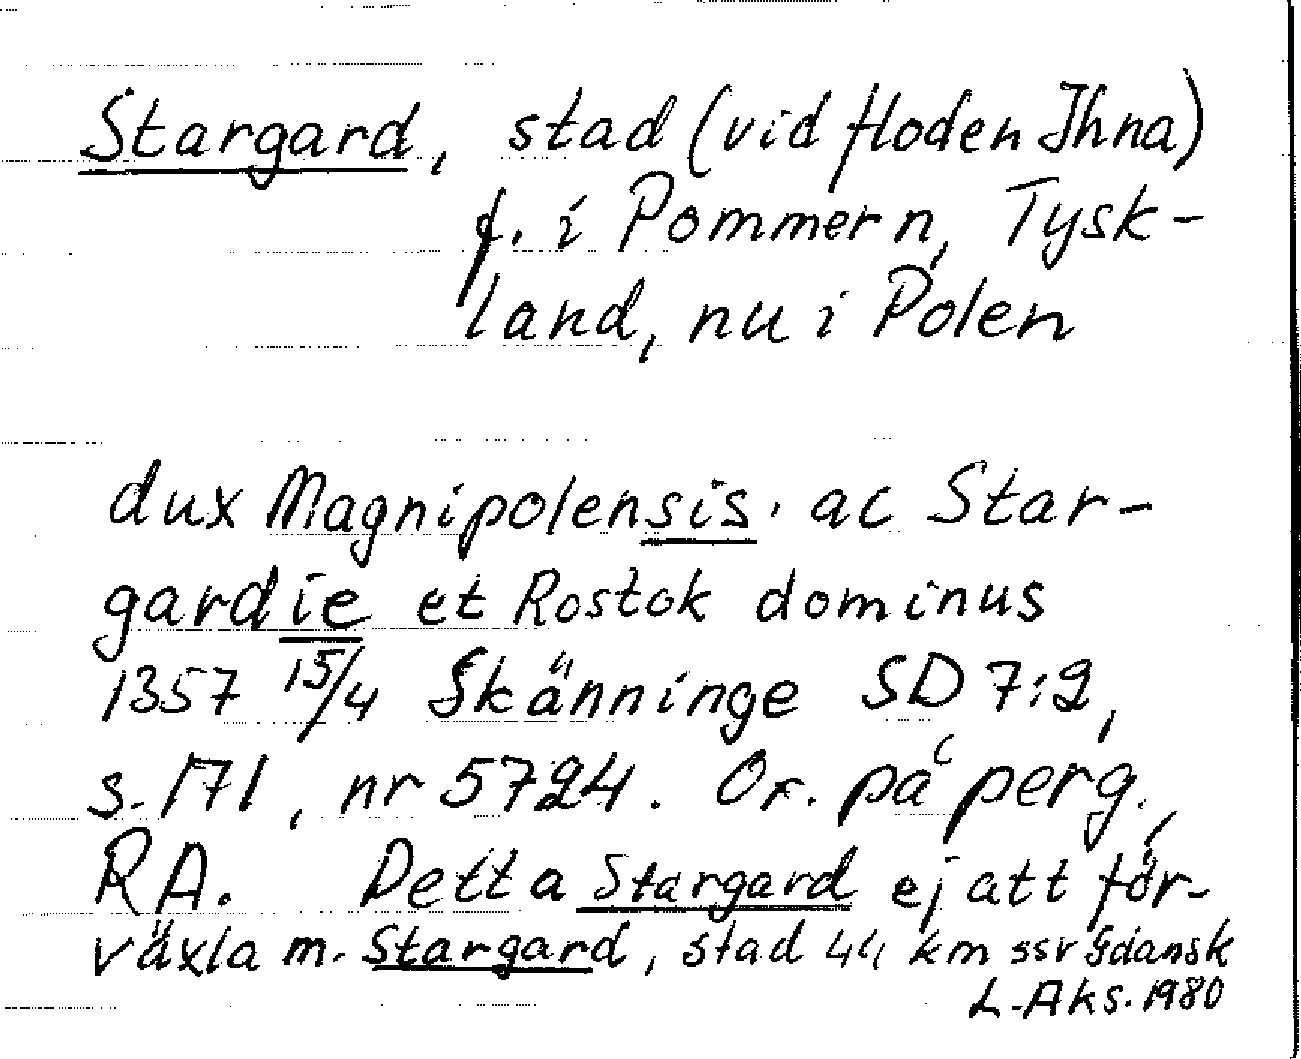 Stargard, stad (vid floden Ihna)
f. i Pommern, Tysk-
land, nu i Polen
dux Magnipolensis, ac Star-
gardie et Rostok dominus
1357 15/4 Skänninge SD 7:2,
s. 171, nr 5724. Or. på perg.,
RA. Detta Stargard ej att för-
växla m. Stargard, stad 44 km ssv Gdansk
L. Aks. 1980